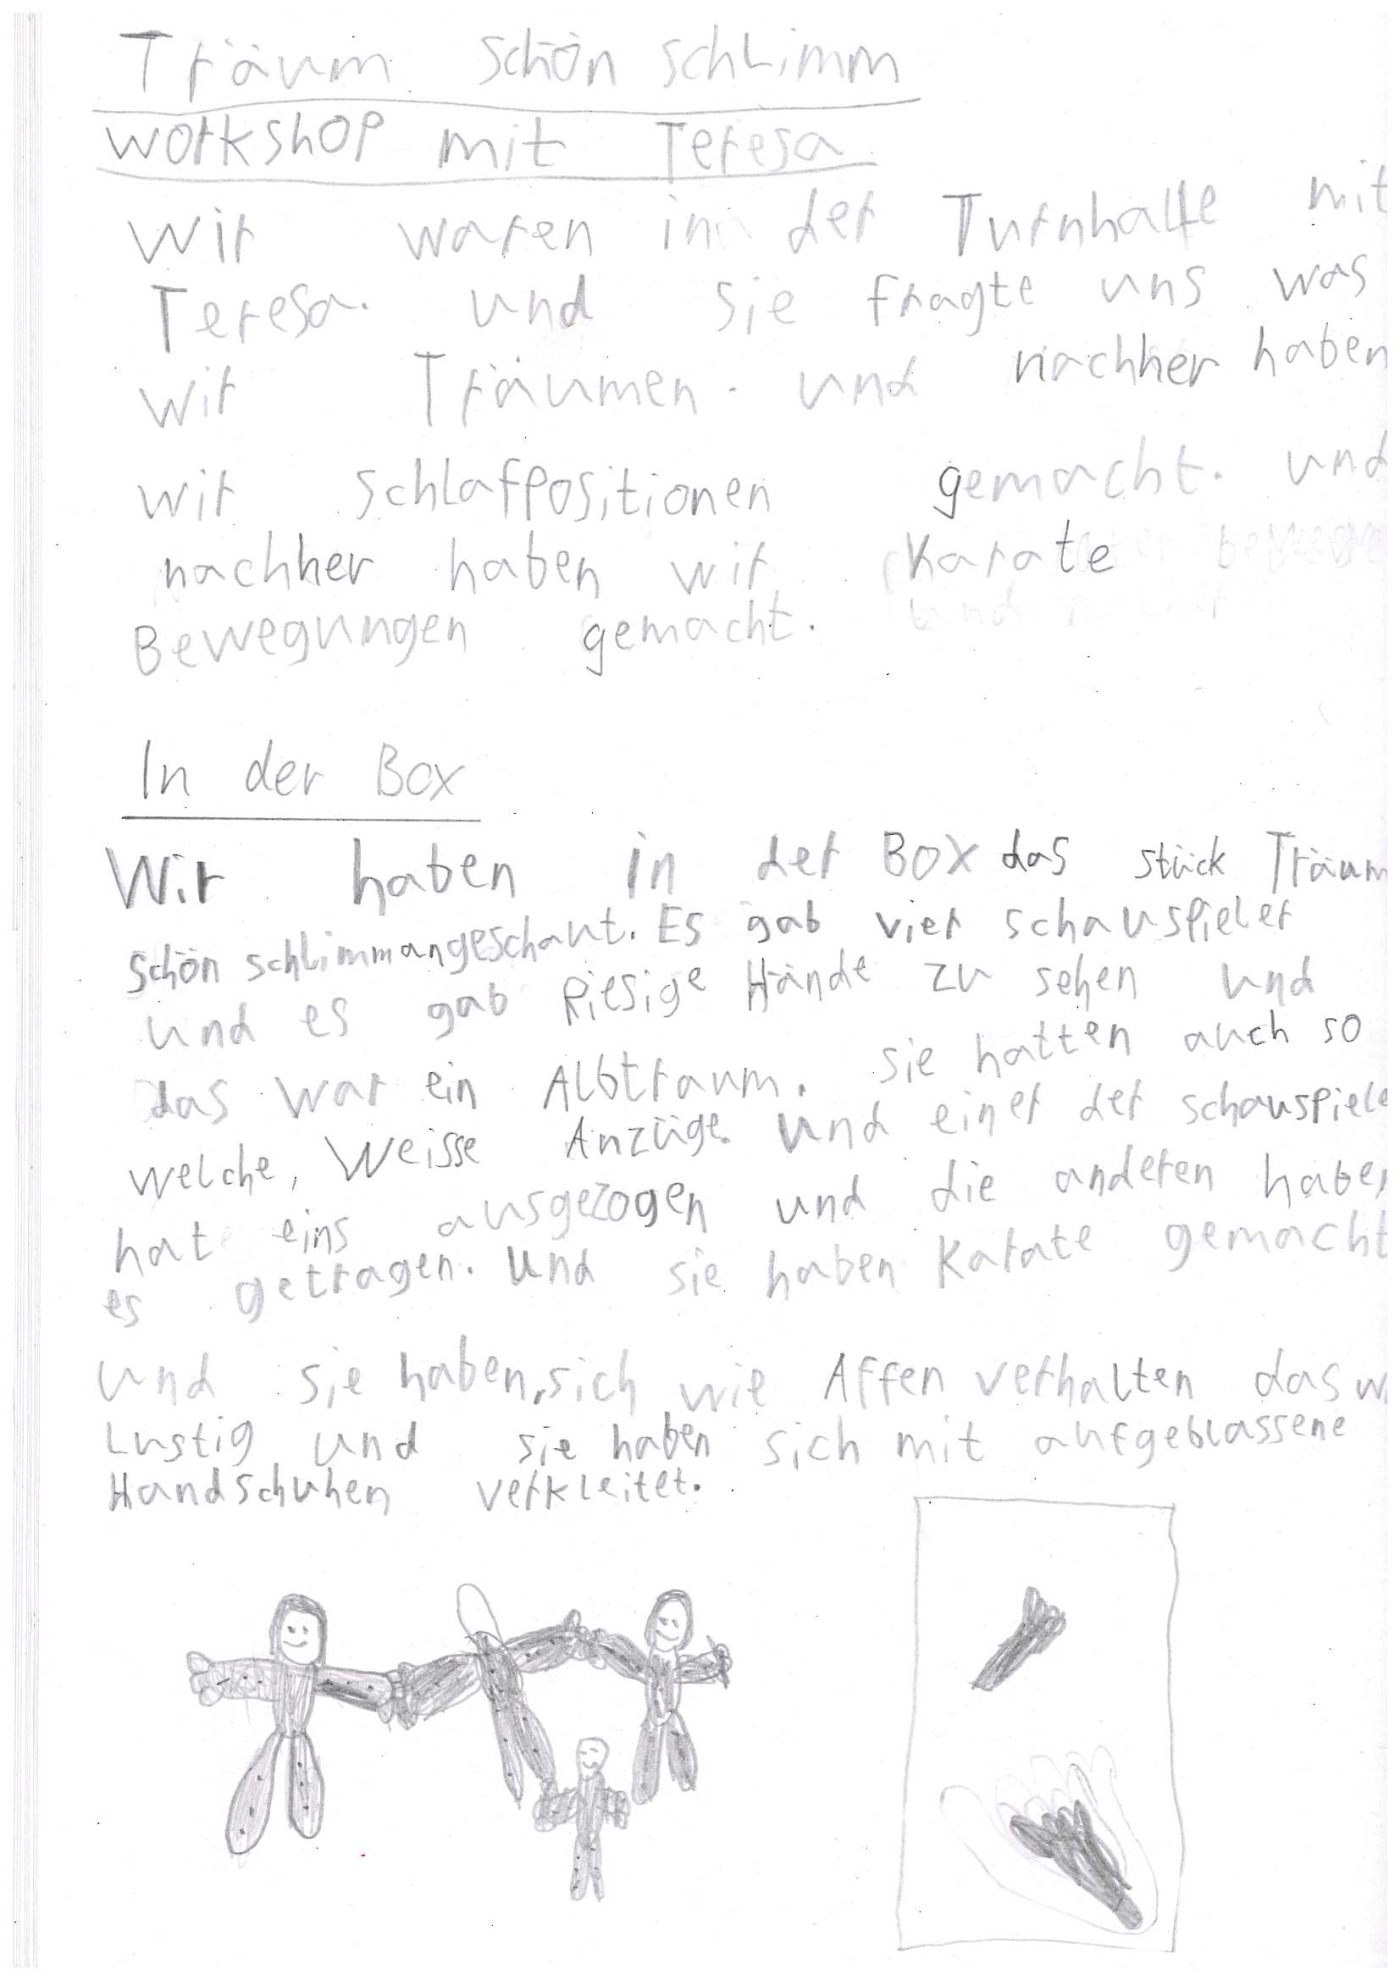 Träum schön schlimm
workshop mit Teresa
Wir waren in der Turnhalle mit
Teresa. und sie fragte uns was
wir Träumen. und nachher haben
wir schlafpositionen gemacht. und
nachher haben wir Karate
Bewegungen gemacht.
In der Box
Wir haben in der Box das stück Träum
schön schlimmangeschaut. Es gab vier schauspieler
und es gab Riesige Hände zu sehen und
das war ein Albtraum. sie hatten auch so
welche, Weisse Anzüge. und einer der schauspiele
hat eins ausgezogen und die anderen haben
es getragen. Und sie haben Karate gemacht
und sie haben, sich wie Affen verhalten das w
Lustig und sie haben sich mit aufgeblassene
Handschuhen verkleitet.